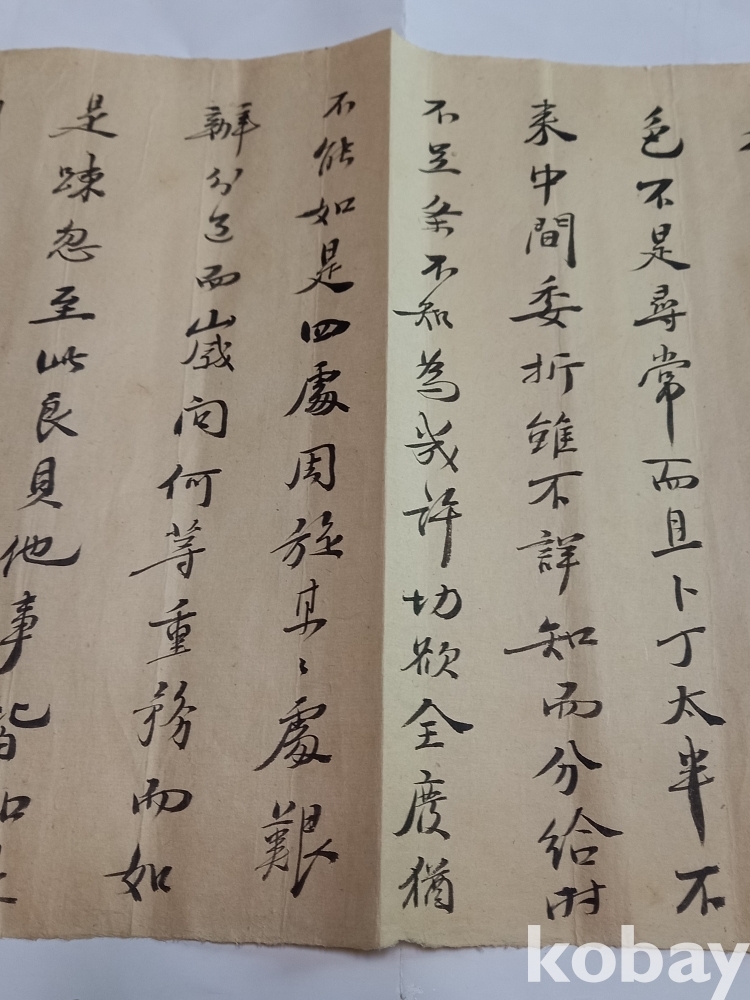 色不是尋常而且卜丁太半不
來中間委折雖不詳知而分給時
不足条不知為幾許切欲全度猶
不能如是四處周旋某〻處艱
辦分送而歲問何等重務而如
是疎忽至此良貝他事皆如是
kobay